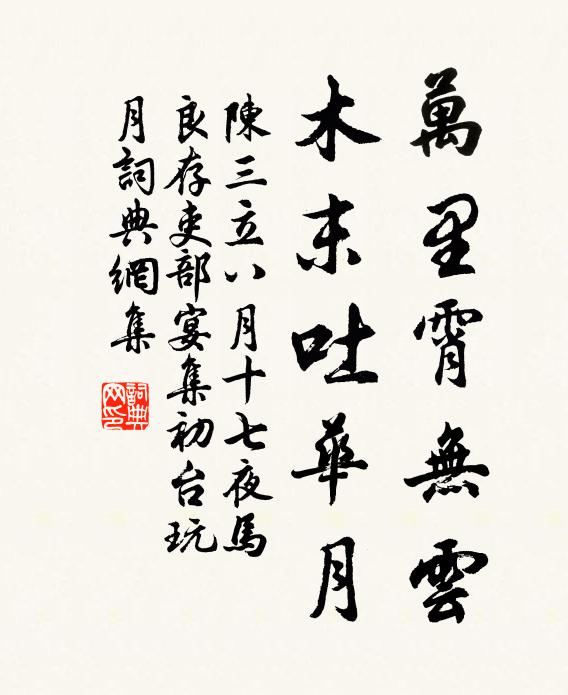 萬里霄無雲
木末吐華月
陳三立八月十七夜馬
良存吏部宴集初台玩
月詞典網集
詞典网印